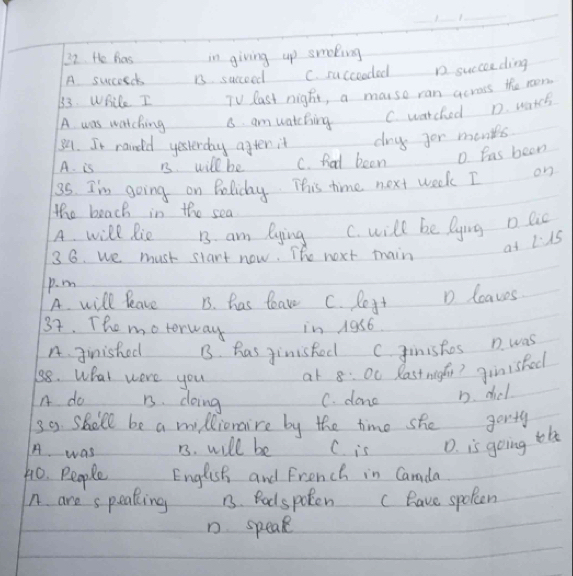 32. He has in giving up smoking
A. succeeds B. succeed C. succeeded D. succeeding
33. While I TV last night, a mouse ran across the room.
A. was watching B. am watching C. watched D. watch
34. It rained yesterday after it dry for months
A. is B. will be C. had been D. has been
35. I'm going on holiday. This time next week I on
the beach in the sea
A. will lie B. am lying C. will be lying D. lie
36. We must start now. The next train at 1:15
p.m
A. will leave B. has leave C. left D. leaves.
37. The motorway in 1986.
A. finished B. has finished C. finishes D. was
finished
38. What were you at 8:00 last night?
A. do B. doing C. done D. did
39. She'll be a millionaire by the time she forty
A. was B. will be C. is D. is going to be
40. People English and French in Canada.
A. are speaking B. had spoken C. have spoken
D. speak